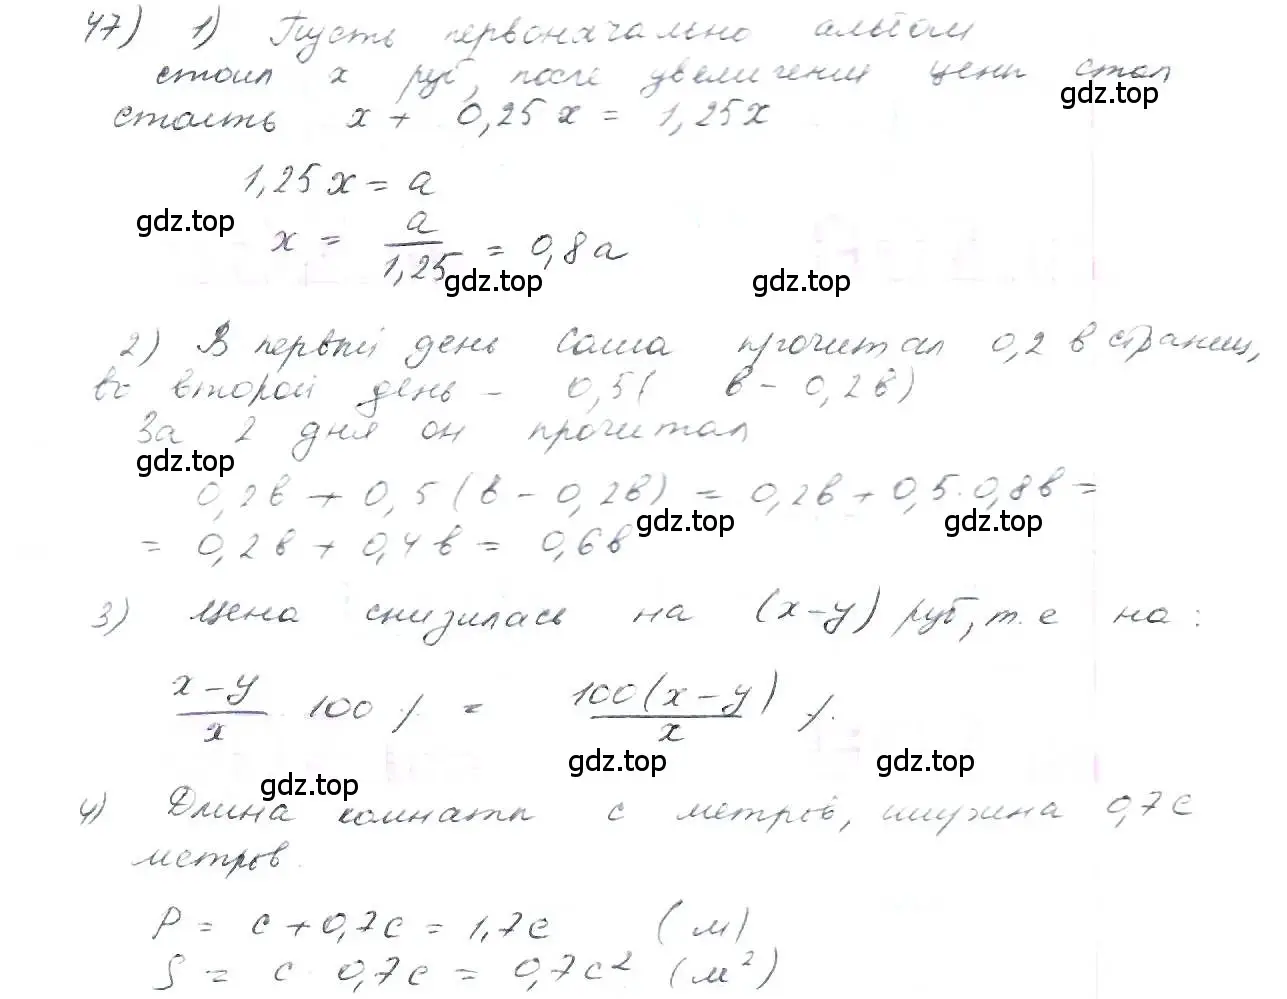 47) 1) Пусть первоначально альбом
стоил x руб, после увеличения цены стал
gdz.top
стоить x + 0,25x = 1,25x
1,25x = a
gdz.top
x = a/1,25 = 0,8a
gdz.top gdz.top
2) В первый день Саша прочитал 0,2 в страниц,
во второй день - 0,5( в - 0,2в)
За 2 дня он прочитал
gdz.top
0,2в + 0,5(в - 0,2в) = 0,2в + 0,5·0,8в =
gdz.top gdz.top
= 0,2в + 0,4в = 0,6в
3) Цена снизилась на (x-y) руб, т.е на:
x-y/x 100 % = 100(x-y)/x %
gdz.top gdz.top
gdz.top
4) Длина комнаты с метров, ширина 0,7с
метров.
P = c + 0,7c = 1,7c (м)
S = c 0,7c = 0,7c² (м²)